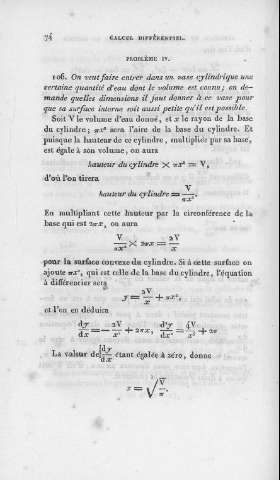 74 CALCUL DIFFÉRENTIEL.
PROBLÈME IV.
106. On veut faire entrer dans un vase cylindrique une
certaine quantité d'eau dont le volume est connu; on de-
mande quelles dimensions il faut donner à ce vase pour
que sa surface interne soit aussi petite qu'il est possible.
Soit V le volume d'eau donné, et x le rayon de la base
du cylindre; πx² sera l'aire de la base du cylindre. Et
puisque la hauteur de ce cylindre, multipliée par sa base,
est égale à son volume, on aura
hauteur du cylindre × πx² = V,
d'où l'on tirera
hauteur du cylindre = V/πx².
En multipliant cette hauteur par la circonférence de la
base qui est 2πx, on aura
V/πx² × 2πx = 2V/x
pour la surface convexe du cylindre. Si à cette surface on
ajoute πx², qui est celle de la base du cylindre, l'équation
à différencier sera
y = 2V/x + πx²,
et l'on en déduira
dy/dx = − 2V/x² + 2πx, d²y/dx² = 4V/x³ + 2π
La valeur de dy/dx étant égalée à zéro, donne
x = ∛(V/π).